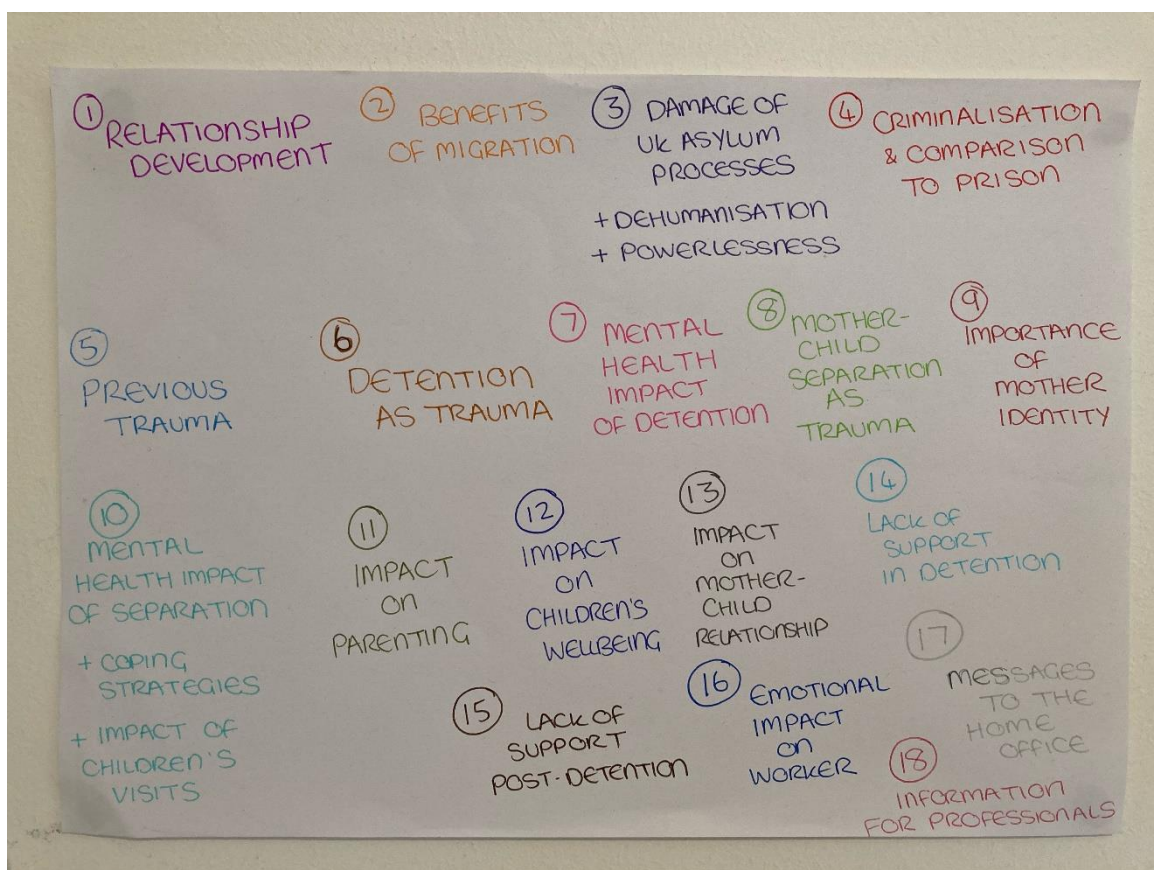 ① RELATIONSHIP
DEVELOPMENT
② BENEFITS
OF MIGRATION
③ DAMAGE OF
UK ASYLUM
PROCESSES
+ DEHUMANISATION
+ POWERLESSNESS
④ CRIMINALISATION
& COMPARISON
TO PRISON
⑤
PREVIOUS
TRAUMA
⑥
DETENTION
AS TRAUMA
⑦ MENTAL
HEALTH
IMPACT
OF DETENTION
⑧ MOTHER-
CHILD
SEPARATION
AS
TRAUMA
⑨
IMPORTANCE
OF
MOTHER
IDENTITY
⑩
MENTAL
HEALTH IMPACT
OF SEPARATION
+ COPING
STRATEGIES
+ IMPACT OF
CHILDREN'S
VISITS
⑪
IMPACT
ON
PARENTING
⑫
IMPACT
ON
CHILDREN'S
WELLBEING
⑬
IMPACT
ON
MOTHER-
CHILD
RELATIONSHIP
⑭
LACK OF
SUPPORT
IN DETENTION
⑮ LACK OF
SUPPORT
POST-DETENTION
⑯ EMOTIONAL
IMPACT
ON
WORKER
⑰
MESSAGES
TO THE
HOME
OFFICE
⑱
INFORMATION
FOR PROFESSIONALS